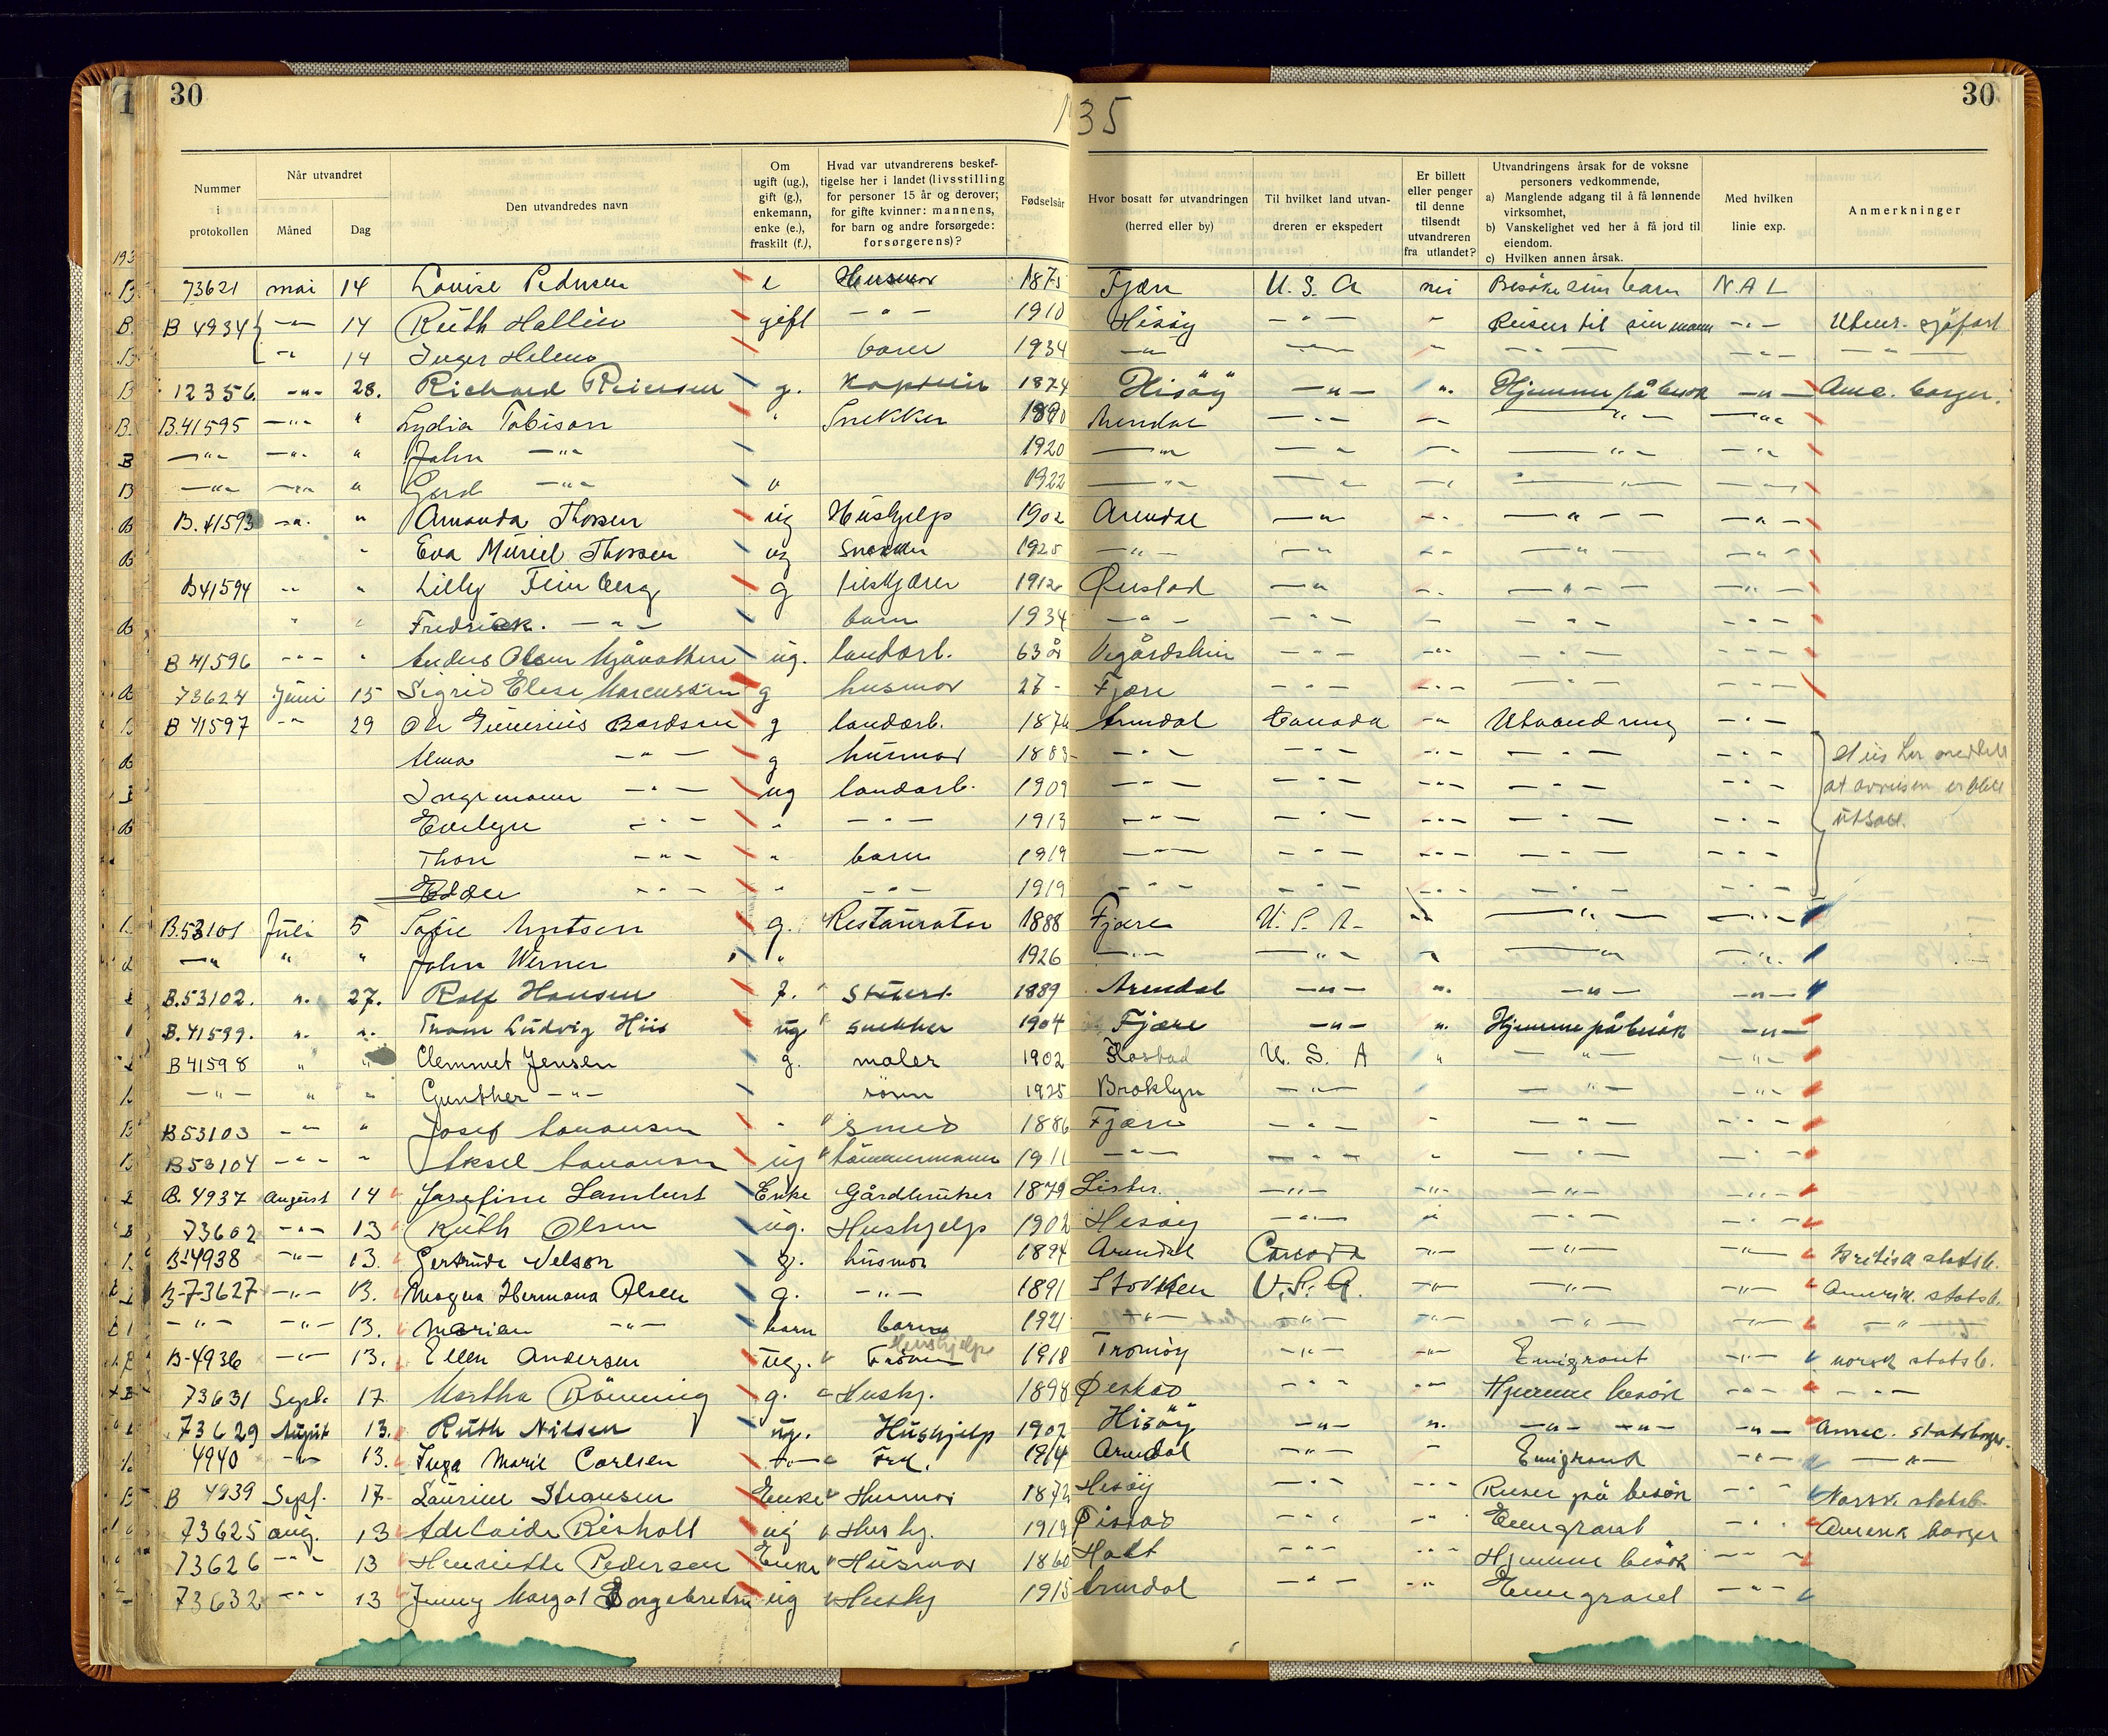 30
1935
30
Nummer i protokollen
Når utvandret
Måned
Dag
Den utvandredes navn
Om ugift (ug.), gift (g.), enkemann, enke (e.), fraskilt (f.),
Hvad var utvandrerens beskef-
tigelse her i landet (livsstilling
for personer 15 år og derover;
for gifte kvinner: mannens,
for barn og andre forsørgede:
forsørgerens)?
Fødselsår
Hvor bosatt før utvandringen
(herred eller by)
Til hvilket land utvan-
dreren er ekspedert
Er billett
eller penger
til denne
tilsendt
utvandreren
fra utlandet?
Utvandringens årsak for de voksne
personers vedkommende,
a) Manglende adgang til å få lønnende
virksomhet,
b) Vanskelighet ved her å få jord til
eiendom.
c) Hvilken annen årsak.
Med hvilken
linie exp.
Anmerkninger
193
73621 mai 14 Lovise Pedersen e Husmor 1875 Fjære U.S.A nei Besøke sine barn N.A.L
B 4934 -"- 14 Ruth Hallin gift -"- 1910 Hisöy -"- - Reiser til sin mann -"- Utenr. sjöfart
-"- 14 Inger Helene barn 1934 -"- -"- - -"- -"- -"-
12356 -"- 28. Richard g. Kaptein 1874 Hisöy -"- ". Hjemme på besök -"- Ame. borger.
B.41595 -"- " Lydia Tobison " Snekker 1890 Arendal -"- -"- -"- -"-
-"- -"- " John -"- 1920 -"- -"- -"- -"- -"-
-"- -"- " Gerd -"- 1922 -"- -"- -"- -"- -"-
B.41593 -"- " Amanda Thorsen ug Hushjelp 1902 Arendal -"- -"- -"- -"-
" Eva Muriel Thorsen ug Snekker 1925 -"- -"- -"- -"- -"-
B41594 -"- " Lilly Feinberg g tilskjærer 1912 Öiestad -"- -"- -"- -"-
" " Fredrick. -"- barn 1934 -"- -"- - -"- -"-
B 41596 -"- " Anders Olsen ug. landarb. 63 år Vegårdshei -"- -"- -"- -"-
73624 Juni 15 Sigrid Elese Marcussen g husmor 27 - Fjære -"- -"- -"- -"-
B 41597 -"- 29 Ole Gunerius Bardsen g landarb. 1874 Arendal Canada -"- Utvandring -"-
Alma -"- g husmor 1883 -"- -"- -"- -"- -"- at avreisen er blitt utsatt.
Ingemann -"- ug landarb. 1909 -"- -"- -"- -"- -"-
Evelyn -"- " -"- 1913 -"- -"- -"- -"- -"-
Thore -"- " barn 1919 -"- -"- -"- -"- -"-
-"- " -"- 1919 -"- -"- -"- -"- -"-
B.53101 Juli 5 Sofie Knutsen g. Restauratör 1888 Fjære U.S.A. -"- -"- -"-
-"- " " John Werner " 1926 -"- -"- " -"- -"-
B.53102. ". 27. Rolf Hansen f. Stuert. 1889 Arendal -"- ". -"- -"-
B.41599. ". ". Tram Ludvig Hiis ug snekker 1904 Fjære -"- ". Hjemme på besök -"-
B41598 " " Clemmet Jensen g. maler 1902 U.S.A " -"- -"-
-"- " " Gunther -"- sönn 1925 Broklyn -"- -"- -"-
B53103 -"- " Josef " smed 1886 Fjære -"- - -"- -"-
B53104 -"- " Aksel ug " tömmermann 1911 -"- -"- " -"- -"-
B. 4937 August 14 Josefine Lambert Enke Gårdbruker 1879 Lister. -"- -"- -"- -"-
73602 -"- 13 Ruth Olsen ug. Hushjelp 1902 Hisöy -"- " -"- -"-
B-4938 -"- 13. Gertrude Nelson g. husmor 1894 Arendal Canada -"- -"- -"- Britisk statsb.
B-73627 -"- 13. Magna Hermana Olsen g. -"- 1891 Stokken U.S.A. -"- -"- -"- Amerik. statsb.
-"- -"- 13. Marian -"- barn barn 1921 -"- -"- -"- -"- -"- -"-
B-4936 -"- 13. Ellen Andersen ug. Fröken Hushjelp 1918 Tromöy -"- -"- Emigrant -"- norsk statsb.
73631 Sept. 17 Martha Rönning g. Hushj. 1898 Öiestad -"- -"- Hjemme besök -"- -"-
73629 August 13. Ruth Nilsen ug. Hushjelp 1902 Hisöy -"- ". -"- -"- -"- Amec. statsborger.
4940 -"- 13. Inga Marie Carlsen -"- Frk. 1914 Arendal -"- - Emigrant -"- -"-
B 4939 Sept. 17 Laurine Enke Husmor 1872 Hisöy -"- -"- Reiser på besök -"- Norsk statsb.
73625 aug. 13 Adelaide Risholt ug Hushj. 1919 Öiestad -"- -"- Emigrant -"- Amerik borger
73626 -"- 13 Henriette Pedersen Enke Husmor 1860 Holt -"- -"- Hjemme besök -"-
73632 -"- 13 Jenny Margot ug Hushj 1915 Arendal -"- -"- Emigrant -"-